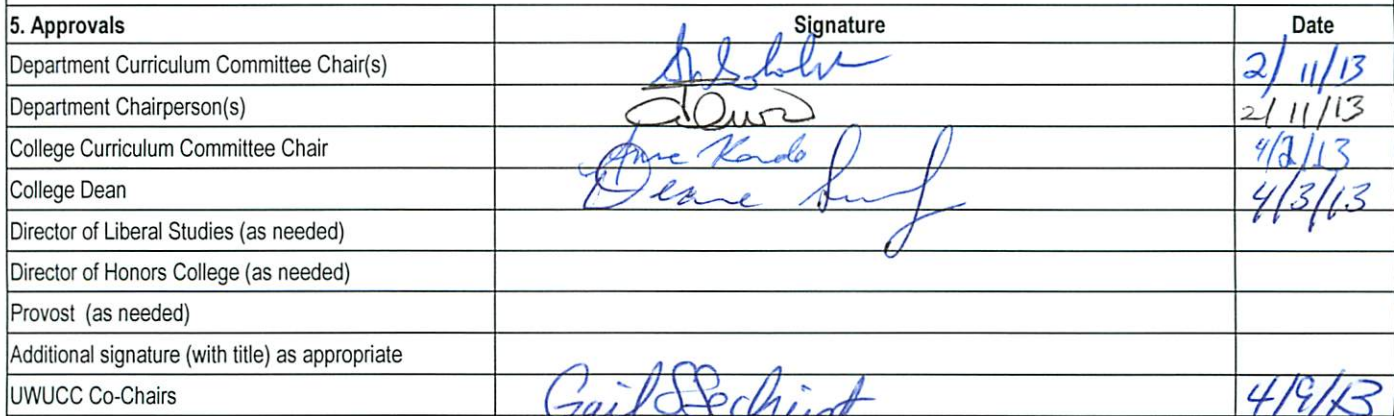 5. Approvals Signature Date
Department Curriculum Committee Chair(s) 2/11/13
Department Chairperson(s) 2/11/13
College Curriculum Committee Chair Anne Kondo 4/2/13
College Dean Deane 4/3/13
Director of Liberal Studies (as needed)
Director of Honors College (as needed)
Provost (as needed)
Additional signature (with title) as appropriate
UWUCC Co-Chairs Gail S Sechrist 4/9/13